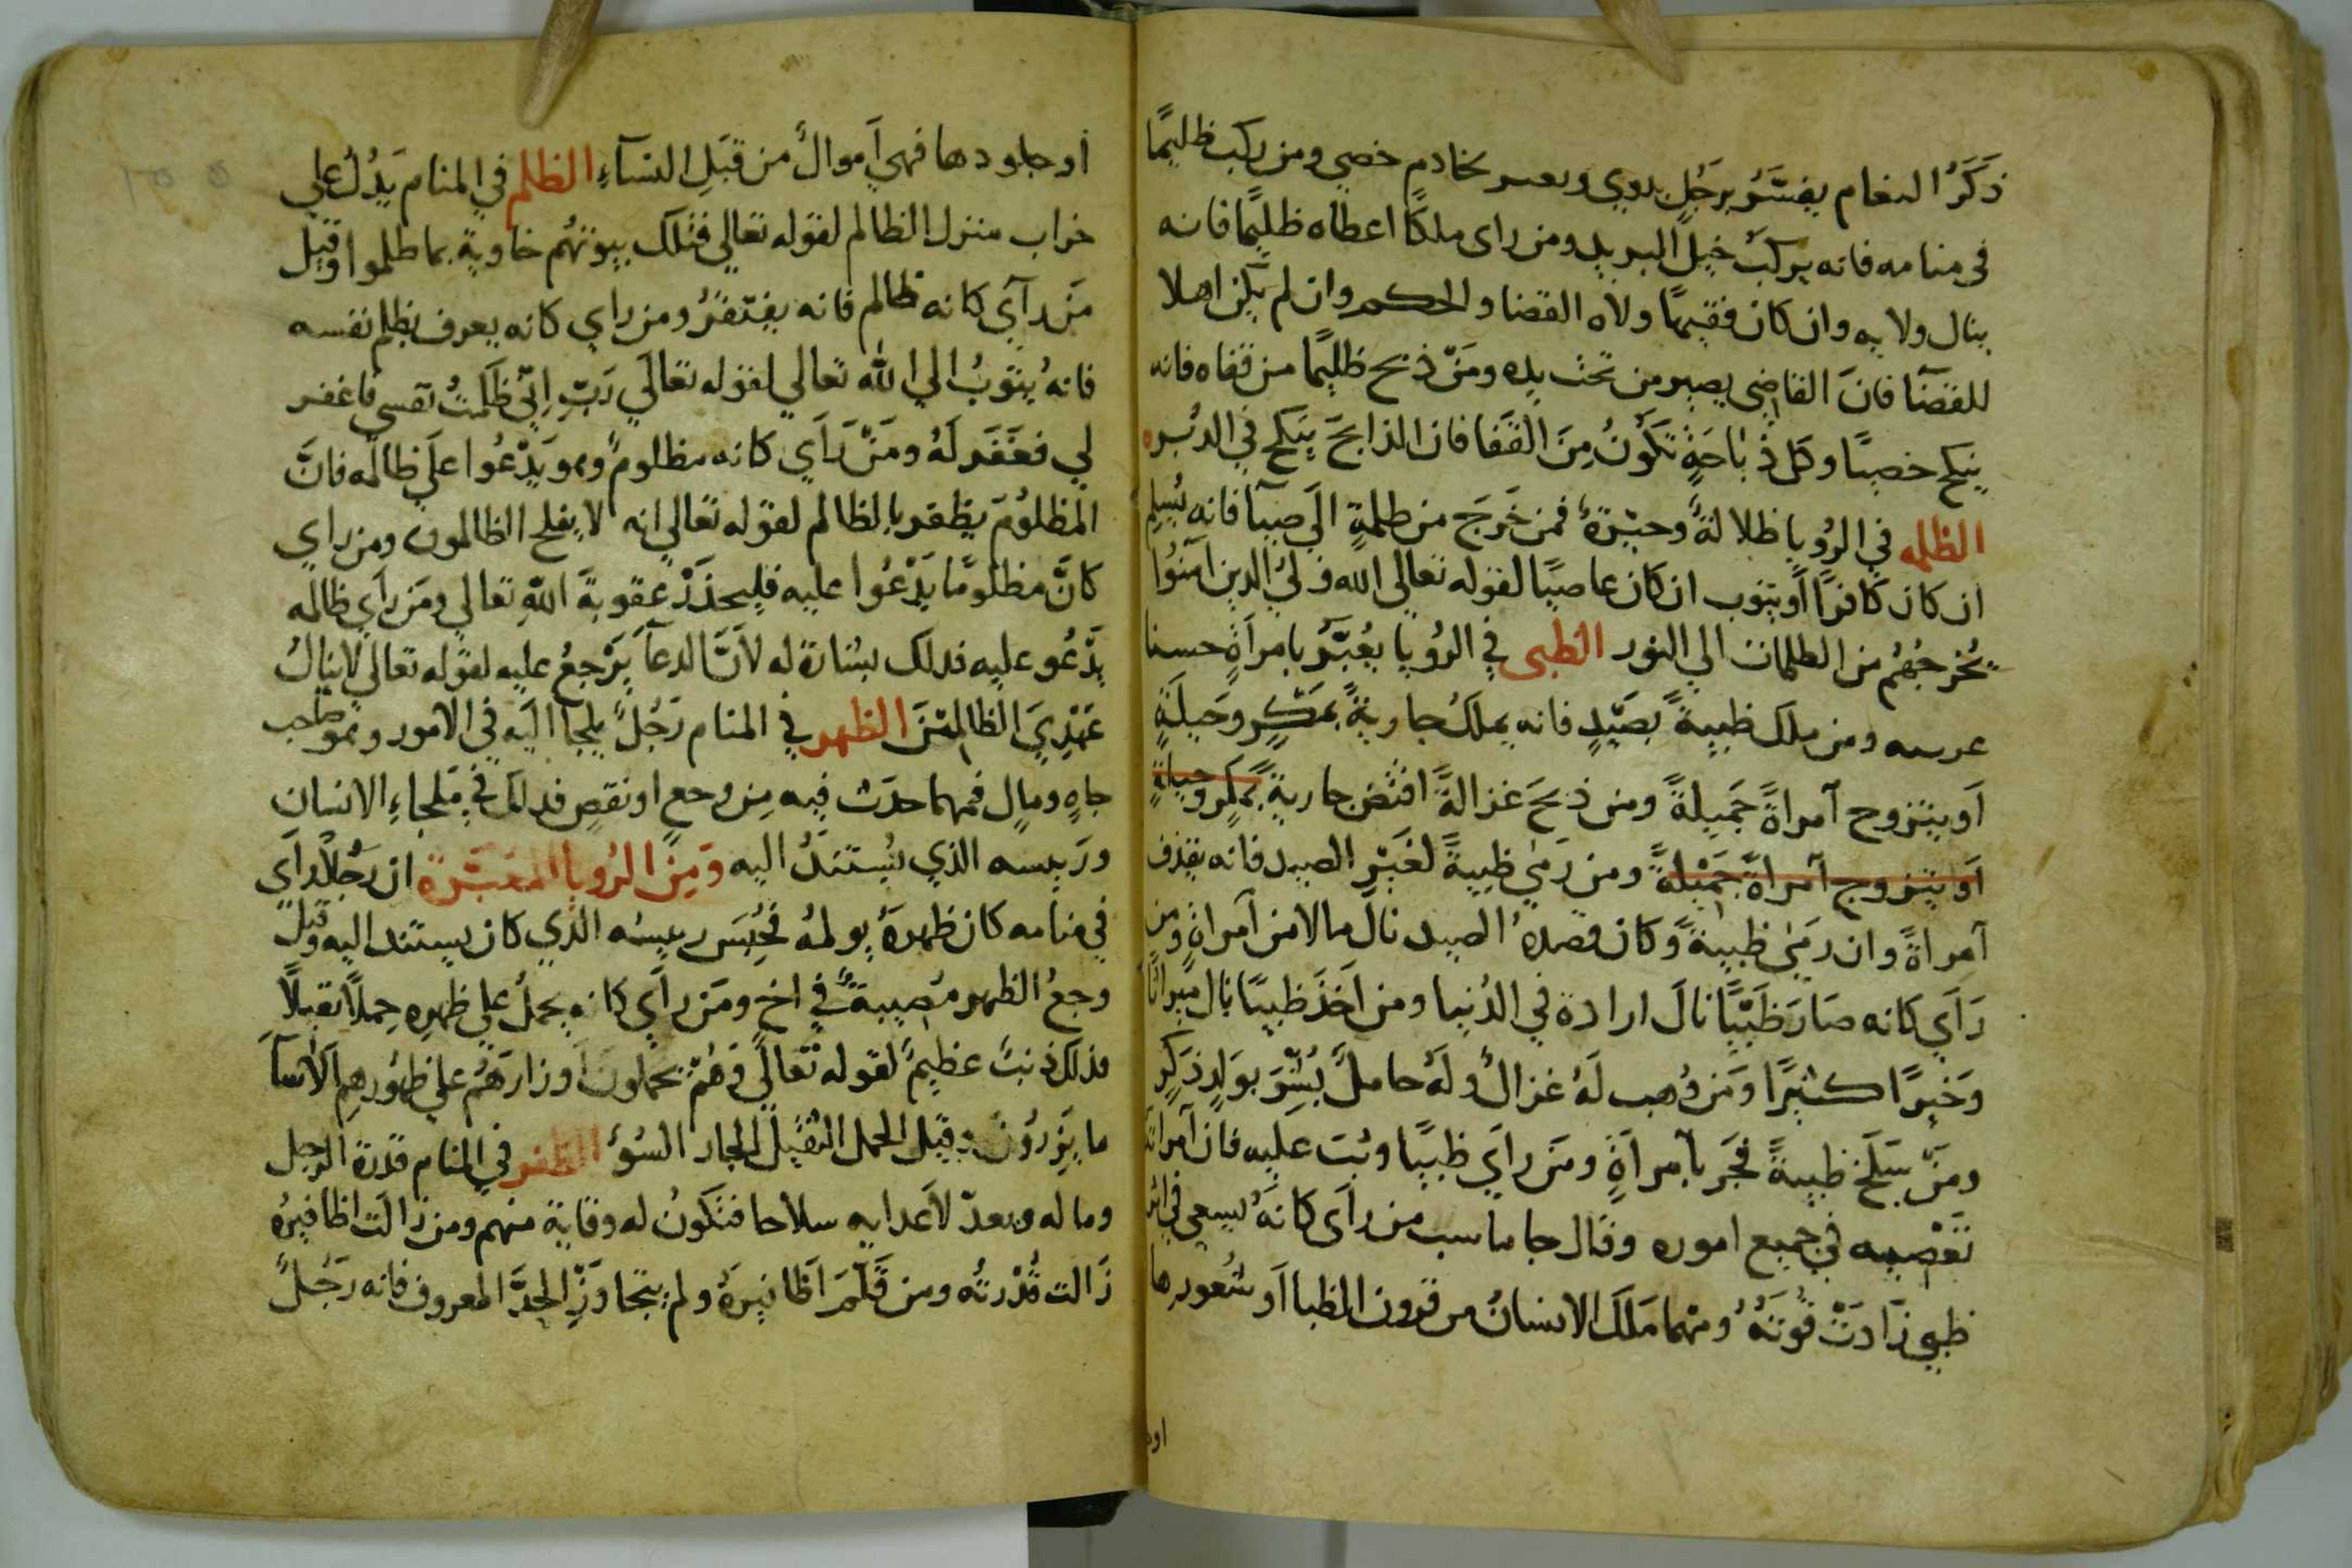 ذَكَرُ النعام يفسَّرُ برَجُلٍ بدوي وىعىر بخادمٍ خصي ومن ركب ظليمًا
في منامه فانه يركبُ خيلَ البريد ومن راى ملكًا اعطاه ظليمًا فانه
ينال ولايه وان كان فقيهًا ولاه القضا والحكم وان لم يكن اهلا
للقضآ فانَ القاضي يصير من تحت يده ومَنْ ذبح ظليمًا من قفاه فانه
ينكح خصيًا وكل ذُبَاحَةٍ تكونُ مِنَ القَفا فان الذابحَ ينكح في الدُبُر
الظلمه في الرُويا ظلالةٌ وحيْرةٌ فمن خَرَجَ من ظلمةٍ الي ضيآ فانه يُسلم
ان كان كافرًا أو يتوب ان كان عاصيًا لقوله تعالى الله وليُ الدين امنُوا
يُخرجُهُم من الظلمات الي النور الظبى في الرُويا يُعبَّرُ بامراَةٍ حسنا
عربيه ومن ملك ظبيةً بصَيْدٍ فانه يملكُ جاريةً بمَكرٍ وحَيلَةٍ
اَو يتزوج آمراةً جَميلةً ومن ذبحَ غزالةً افتضَ جاريةً بمكرٍ وحيلةٍ
اَو يتزوج آمراةً جَميْلةً ومن رَمي ظبيةً لغَيْرِ الصيد فانه يقذف
آمراةً وان رمَي ظبيةً وكان قصدهُ الصيد نالَ مالا من آمراةٍ ومن
رَآي كانه صَارَ ظَبْيًا نالَ ارادة في الدُنيا ومن اَخَذَ ظبيًا نال ميراثًا
وَخيرًا كثيرًا ومَن وُهب لَهُ غزالٌ ولهُ حاملٌ بُشِّرَ بوَلدٍ ذكَرٍ
ومَنْ سَلَخَ ظبيةً فجَر بآمراَةٍ ومَن راَي ظبيًا وثبَ عليه فان آمراته
تَعْصيه في جميع اموره وقال جاماسب من راَى كانهُ يسعي في اثر
ظبيٍ زَادَتْ قُوتهُ ومهما مَلكَ الانسانُ من قرون الظبا اَو شُعورها
او
أو جلودها فهي آموالٌ من قبَلِ النسآءِ الظلم في المنام يَدُلُ علي
خراب منزل الظالم لقوله تعالي فتلك بيوتهُم خاوية بما ظلموا وقيل
مَن رآي كانه ظالم فانه يفتَقرُ ومن راي كانه يعرف بظلم نفسه
فانهُ يتوبُ الي الله تعالي لقوله تعالَي رَبِّ اِنّي ظَلمتُ نفسي فاغفر
لي فغَفَر لَهُ ومَنْ رَاَي كانه مظلومٌ وهو يَدْعُوا علَي ظالمه فانَّ
المظلُومَ يظفر بالظالم لقوله تعالي انه لا يفلح الظالمون ومن راي
كانَّ مظلومًا يَدْعُوا عليه فليحذَرْ عقوبةَ اللهِ تعالي ومَن رأي ظالمه
يَدْعُو عليه فدلك بشارة له لاَنَّ الدعآ يَرْجعُ عليه لقوله تعالي لا ينالُ
عَهْدِيَ الظالِمْينَ الظهر في المنام رَجُلٌ يلجآ اليَه في الامور وهو صاحب
جاهٍ ومالٍ فمهما حدَث فيه مِن وجع او نقصٍ فدلك في مَلجاءِ الانسان
ورَييسه الذي يُستندُ اليه وَمِنَ الرُويا المعبَّرة ان رَجُلاً رَاَي
في منامه كان ظهرهُ يولمهُ فحُبِسَ رءيسُه الذي كان يستند اليه وقيل
وجعُ الظهر مُصيبةٌ في اخٍ ومَن راَي كانه يحملُ علي ظهرِه حِملاً ثقيلاً
فذلك ذنبٌ عظيمٌ لقوله تعالَي وَهُمْ يحملون آوزارَهُمْ علي ظهورِهِم اَلاَ سآ
ما يَزِرُوْن وقيل الحمل الثقيل الجار السُوُ الظفر في المنام قدرة الرجل
وماله وىعدّ لاَعدايه سلاحا فتكونُ له وقاية منهم ومن زالت اظافيرُه
زَالت قُدْرتُه ومن قَلَّمَ اَظافيرَهُ ولم يتجاوَزِ الحَدَّ المعروف فانه رَجُلٌ